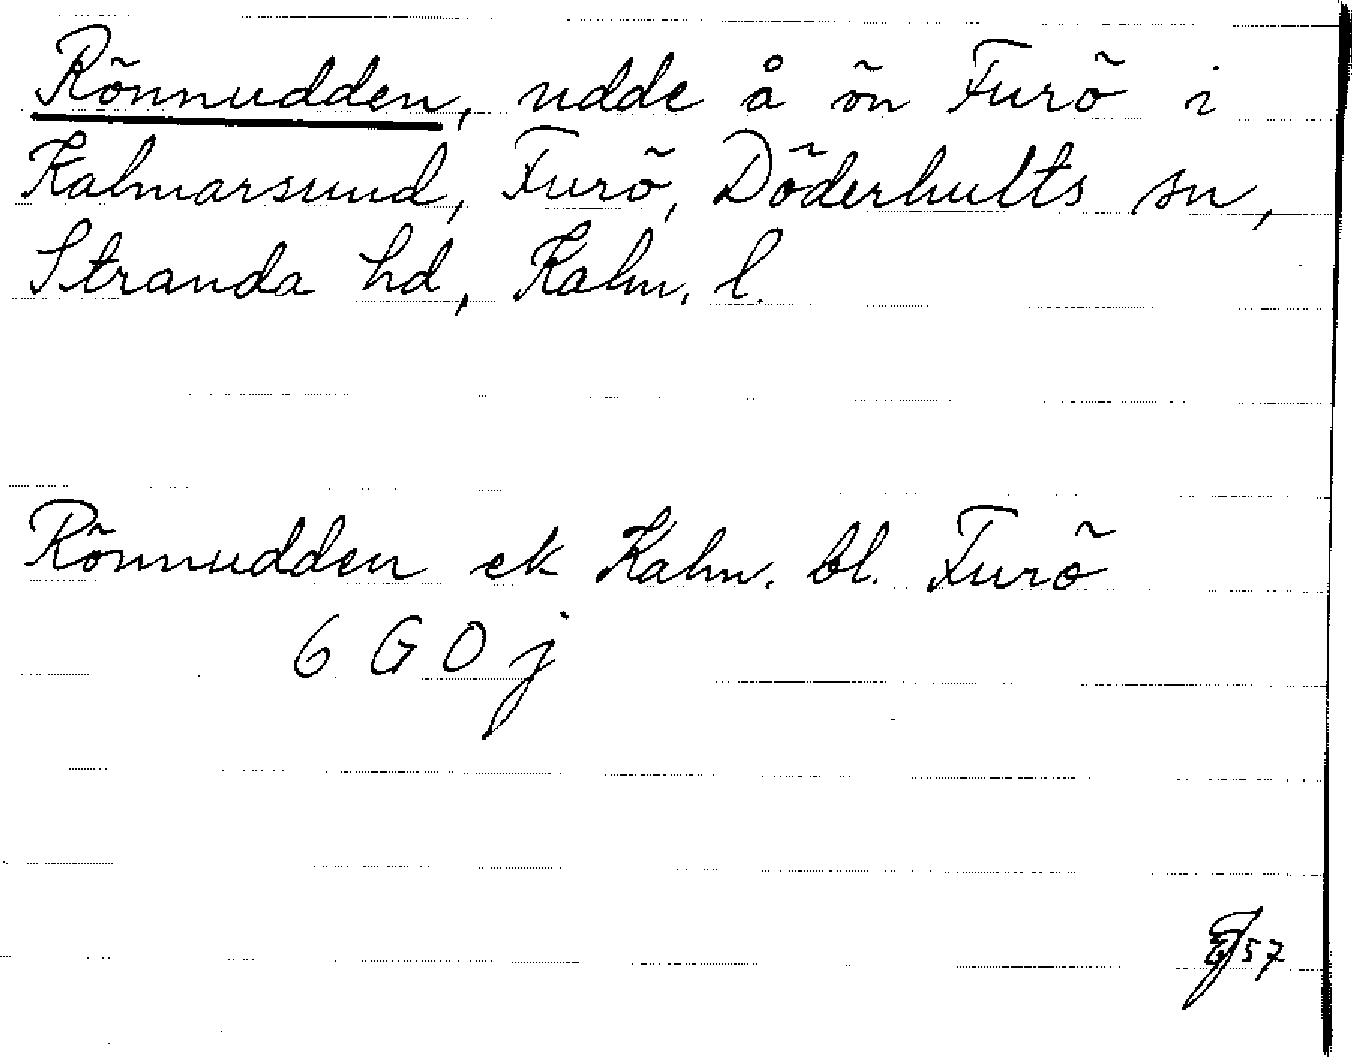 Rönnudden, udde å ön Furö i
Kalmarsund, Furö, Döderhults sn,
Stranda hd, Kalm. l.
Rönnudden ek Kalm. bl. Furö
6 G 0 j
57